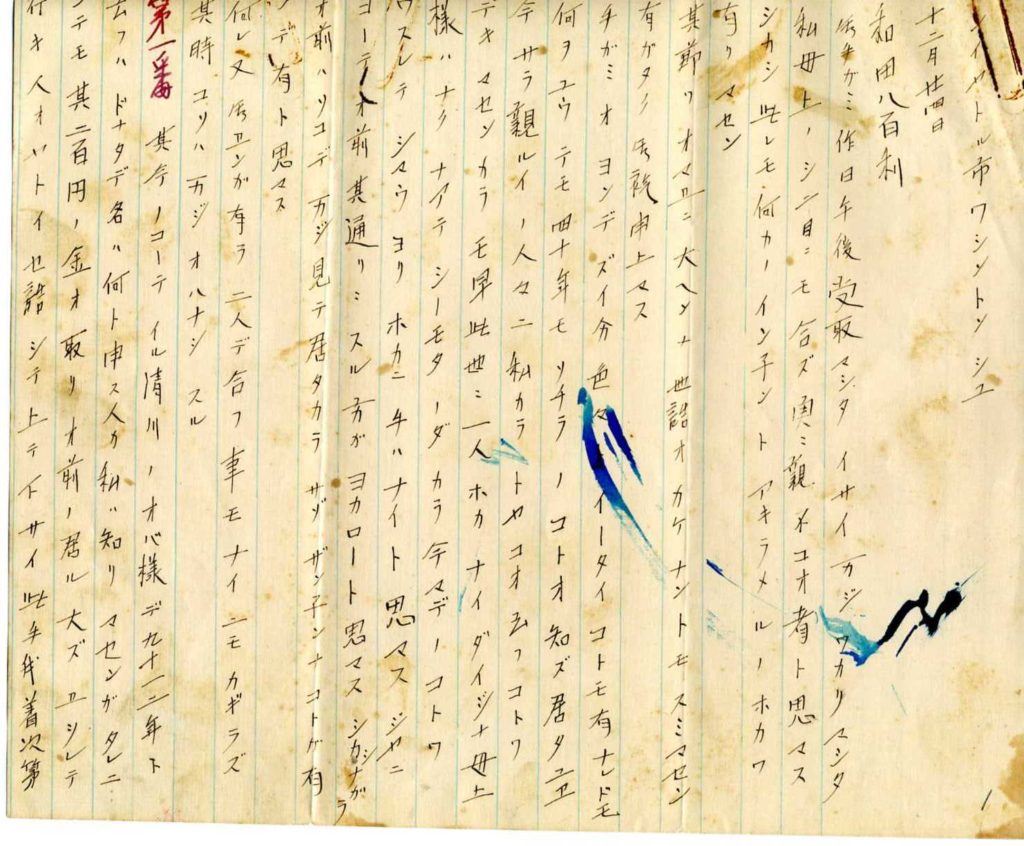 シイヤトル市ワシントン シユ
十二月廿四日
和田八百利
手ガミ 作日午後受取マシタ イサイ カジ ワカリマシタ
私母上ノシニ目ニモ合ズ 実ニ親不コオ者ト思マス
シカシ 此レモ何カノインネント アキラメルノホカワ
有リマセン
其節ワオマエニ大ヘンナ世話オカケナントモスミマセン
有ガタク 礼申上マス
手ガミオヨンデズイ分色々イータイコトモ有ナレドモ
何ヲユウテモ四十年モソチラノコトオ知ズ居タユエ
今サラ親ルイノ人々ニ私カラトヤコオ云フコトワ
デキマセンカラ モ早此世ニ一人ホカナイダイジナ母上
様ハナクナアテシーモタノダカラ今マデノコトワ
ワスレテシマウヨリホカニ手ハナイト思マス ジヤニ
ヨーテオ前其通リニスル方ガヨカロート思マス シカシナガラ
オ前ハソコデ万ジ見テ居タカラ サゾザンネンナコトガ有
ンデ有ト思マス
何レ又 エンガ有ラ二人デ合フ事モナイニモカギラズ
其時ユリハ万ジオハナシスル
第一番 其今ノコーテイル清川ノオバ様デ九十二年ト
云フハドナタデ名ハ何ト申ス人カ私ハ知リマセンガ タレニ
シテモ其二百円ノ金オ取リオ前ノ居ル大ズエシレテ
行キ人オヤトイセ話シテ上テ下サイ 此手代着次第
1